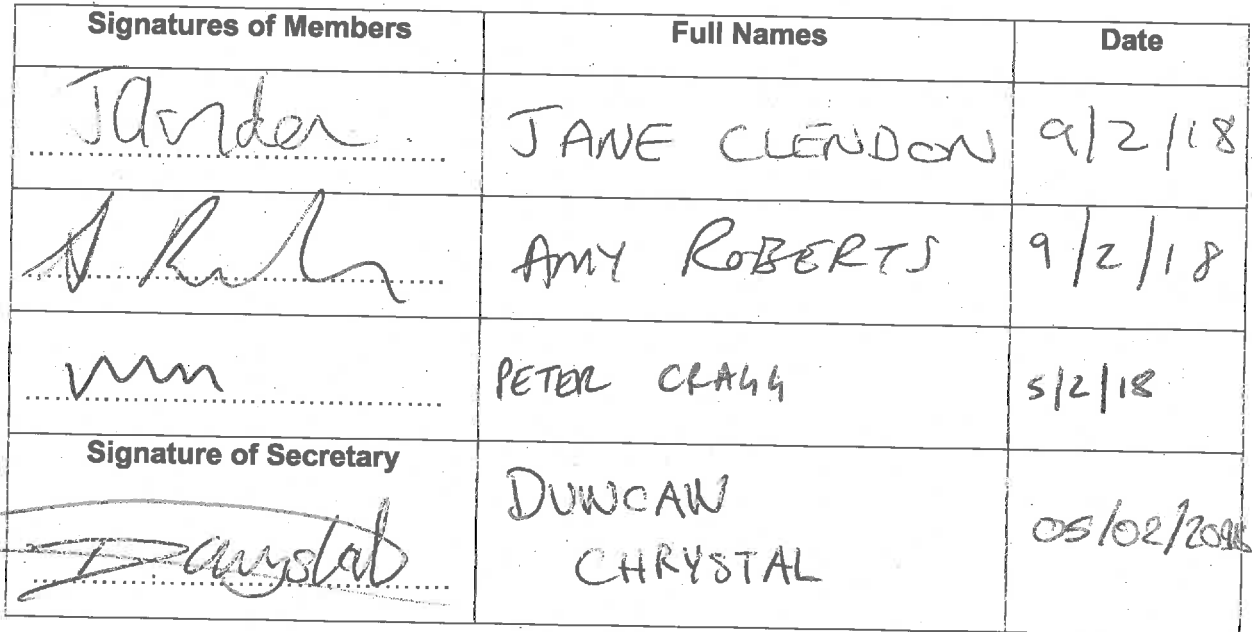 Signatures of Members Full Names Date
JANE CLENDON 9/2/18
AMY ROBERTS 9/2/18
PETER CRAGG 5/2/18
Signature of Secretary
DUNCAN
CHRYSTAL
05/02/2018